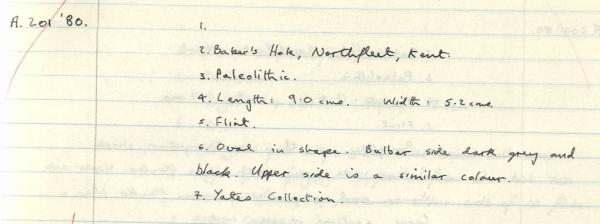 A. 201 '80.
1.
2. Baker's Hole, Northfleet, Kent.
3. Paleolithic.
4. Length: 9.0 cms. Width: 5.2 cms.
5. Flint.
6. Oval in shape. Bulbar side dark grey and
black. Upper side is a similar colour.
7. Yates Collection.